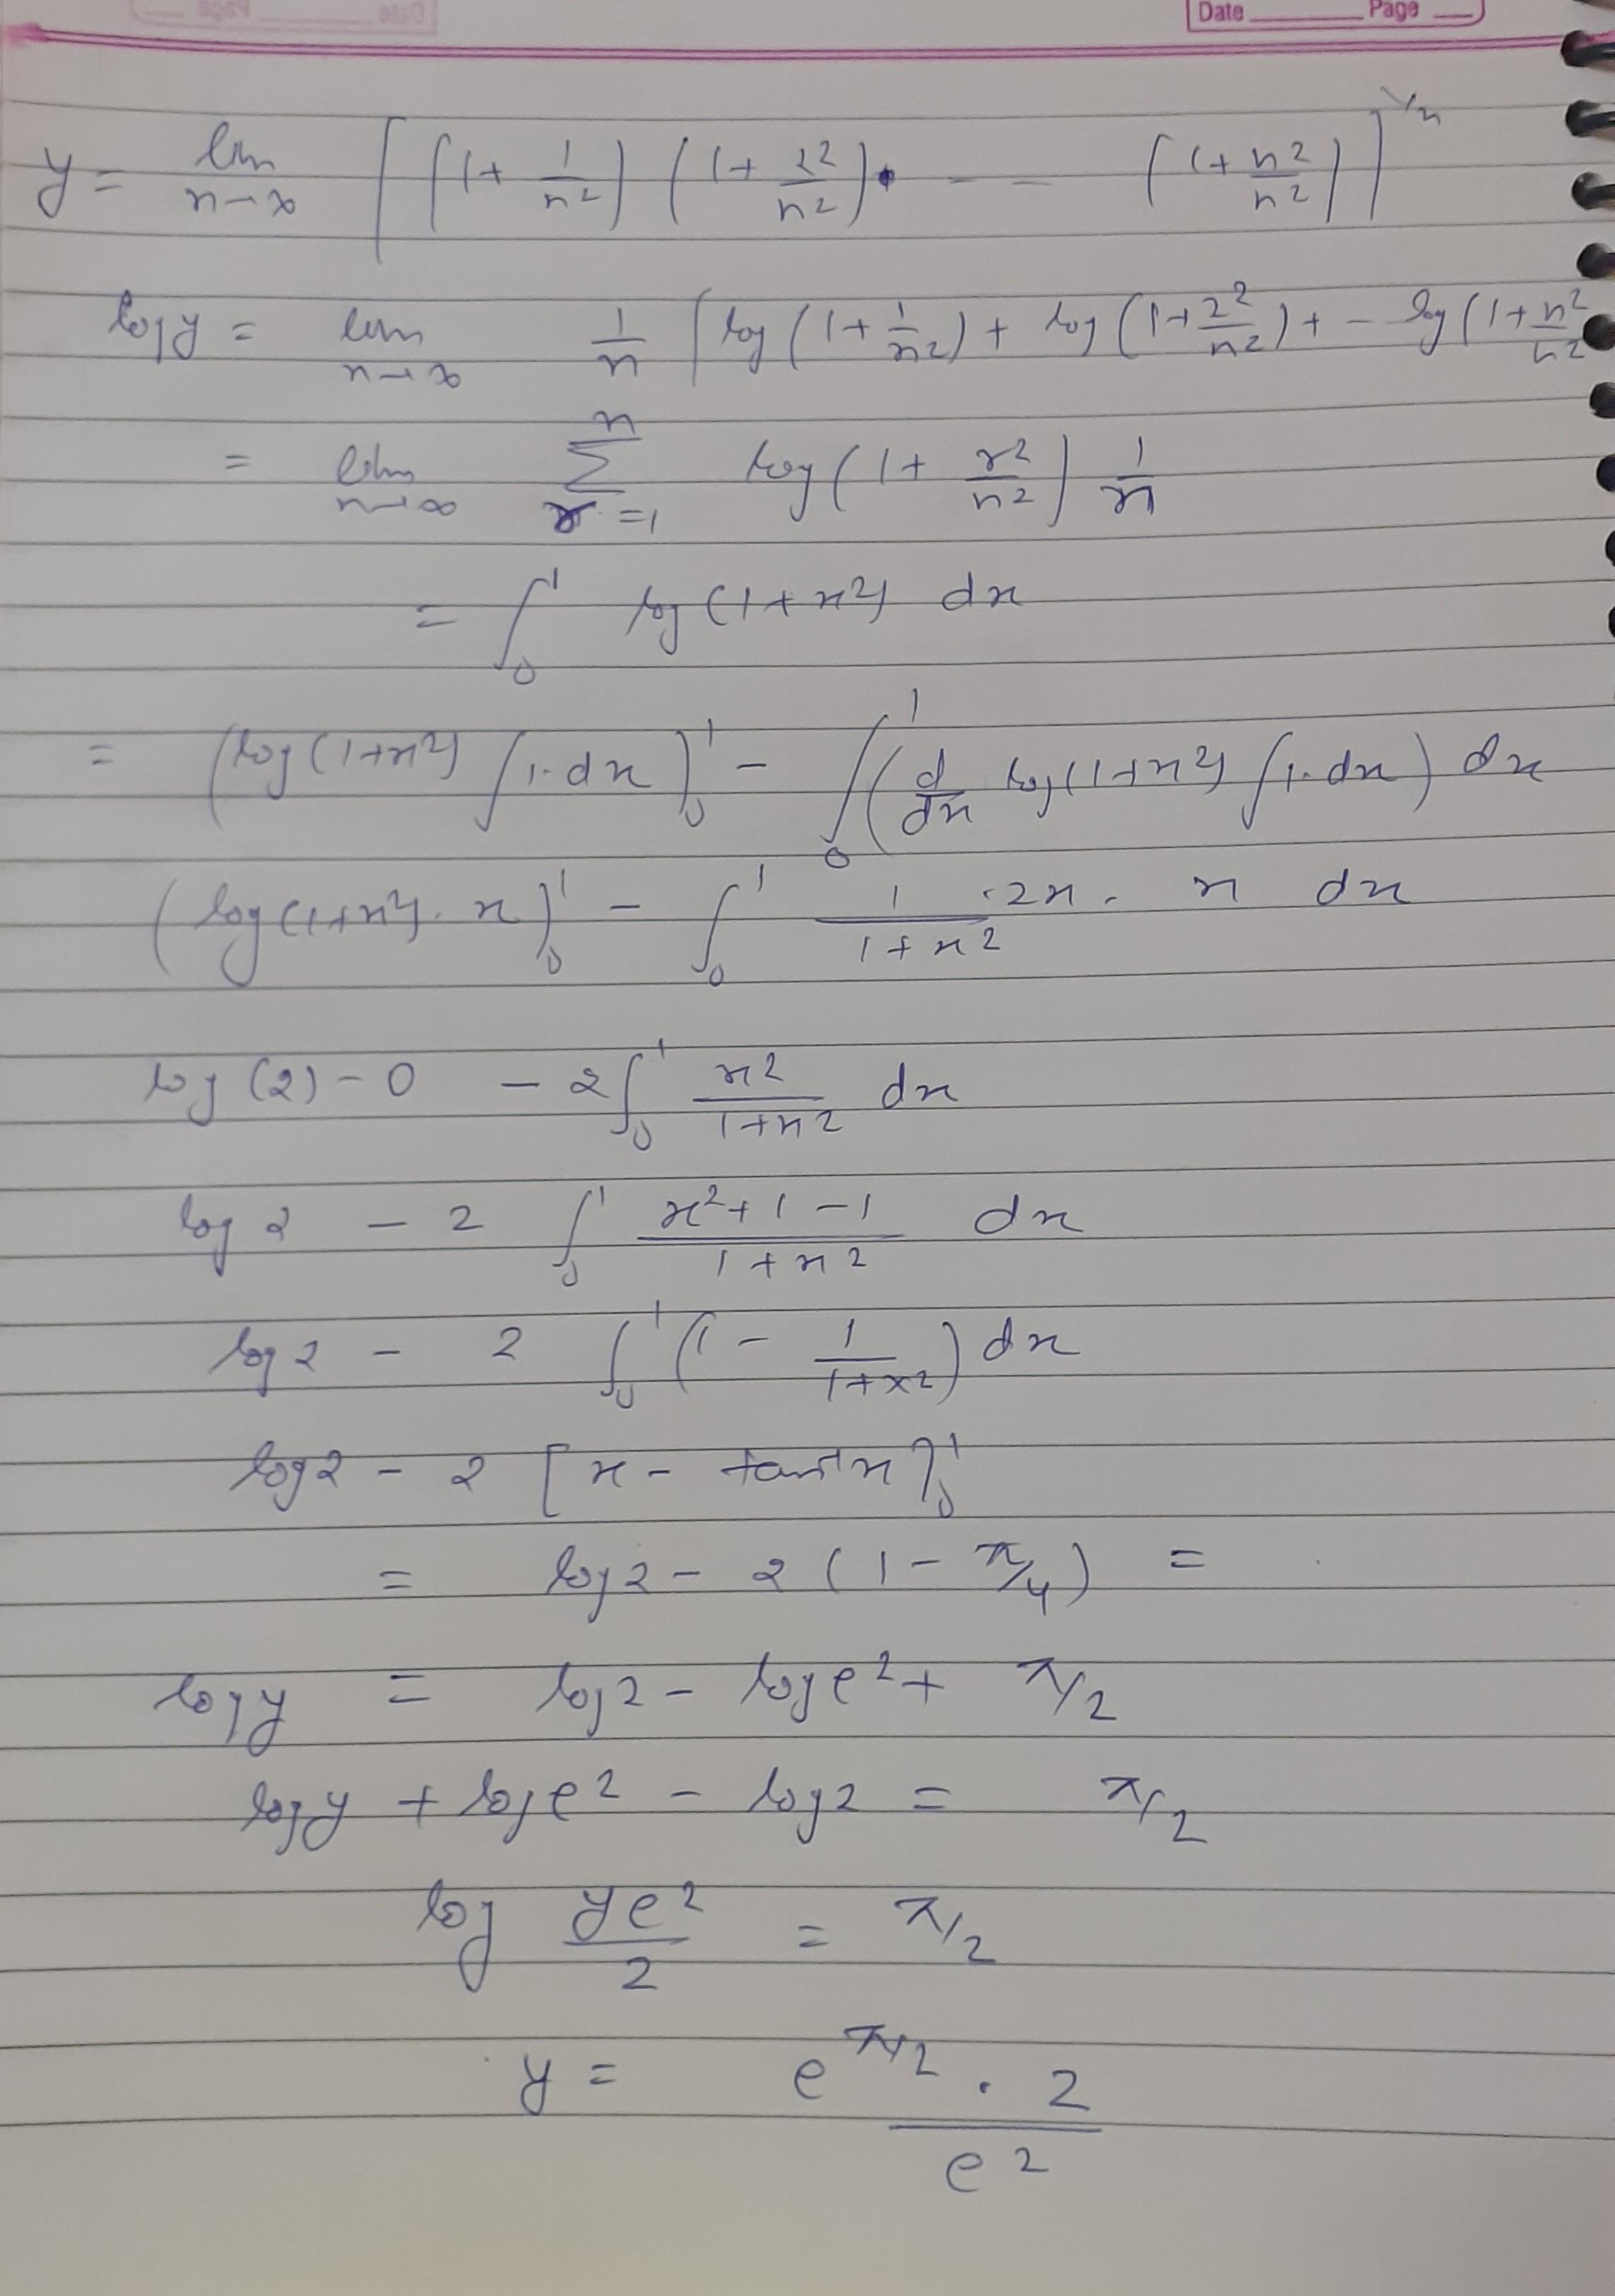 Date Page
y = lim n→∞ [(1 + 1/n²) (1 + 2²/n²). - - (1 + n²/n²)]^1/n
log y = lim n→∞ 1/n [log (1 + 1/n²) + log (1 + 2²/n²) + - log (1 + n²/n²
= lim n→∞ n Σ r=1 log (1 + r²/n²) 1/n
= ∫₀¹ log (1 + x²) dx
= (log (1+x²) ∫1.dx)₀¹ - ∫₀¹ (d/dx log (1+x²) ∫1.dx) dx
(log (1+x²). x)₀¹ - ∫₀¹ 1/(1+x²) .2x. x dx
log (2) - 0 - 2 ∫₀¹ x²/(1+x²) dx
log 2 - 2 ∫₀¹ (x²+1-1)/(1+x²) dx
log 2 - 2 ∫₀¹ (1 - 1/(1+x²)) dx
log 2 - 2 [x - tan⁻¹x]₀¹
= log 2 - 2 (1 - π/4) =
log y = log 2 - log e² + π/2
log y + log e² - log 2 = π/2
log ye²/2 = π/2
y = e^π/2 . 2/e²